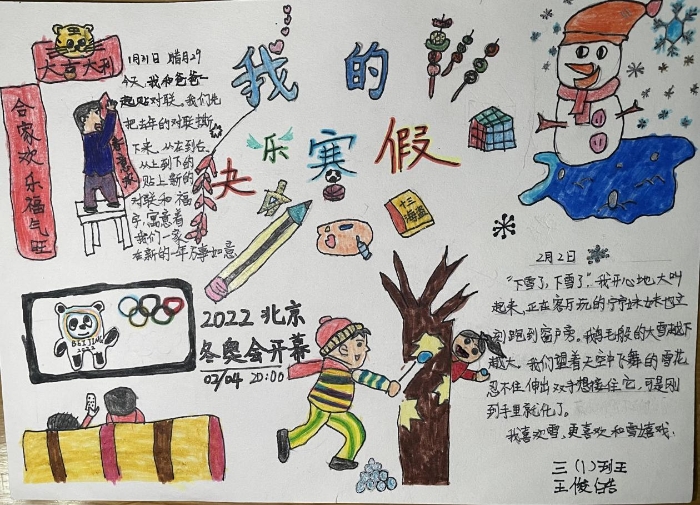 大吉大利
合家欢乐福气旺
1月31日 腊月29
今天,我和爸爸一
起贴对联。我们先
把去年的对联撕
下来,从左到右,
从上到下的
贴上新的
对联和福
字,寓意着
我们一家
在新的一年万事如意
我的
快乐寒假
十三
海盗
BEIJING
2022
2022 北京
冬奥会开幕
02/04 20:00
2月2日
“下雪了,下雪了”我开心地大叫
起来,正在客厅玩的宁宁妹妹也立
刻跑到窗户旁。鹅毛般的大雪越下
越大。我们望着天空中飞舞的雪花,
忍不住伸出双手想接住它,可是刚
到手里就化了。
我喜欢雪,更喜欢和雪嬉戏.
三(1)班
王俊皓